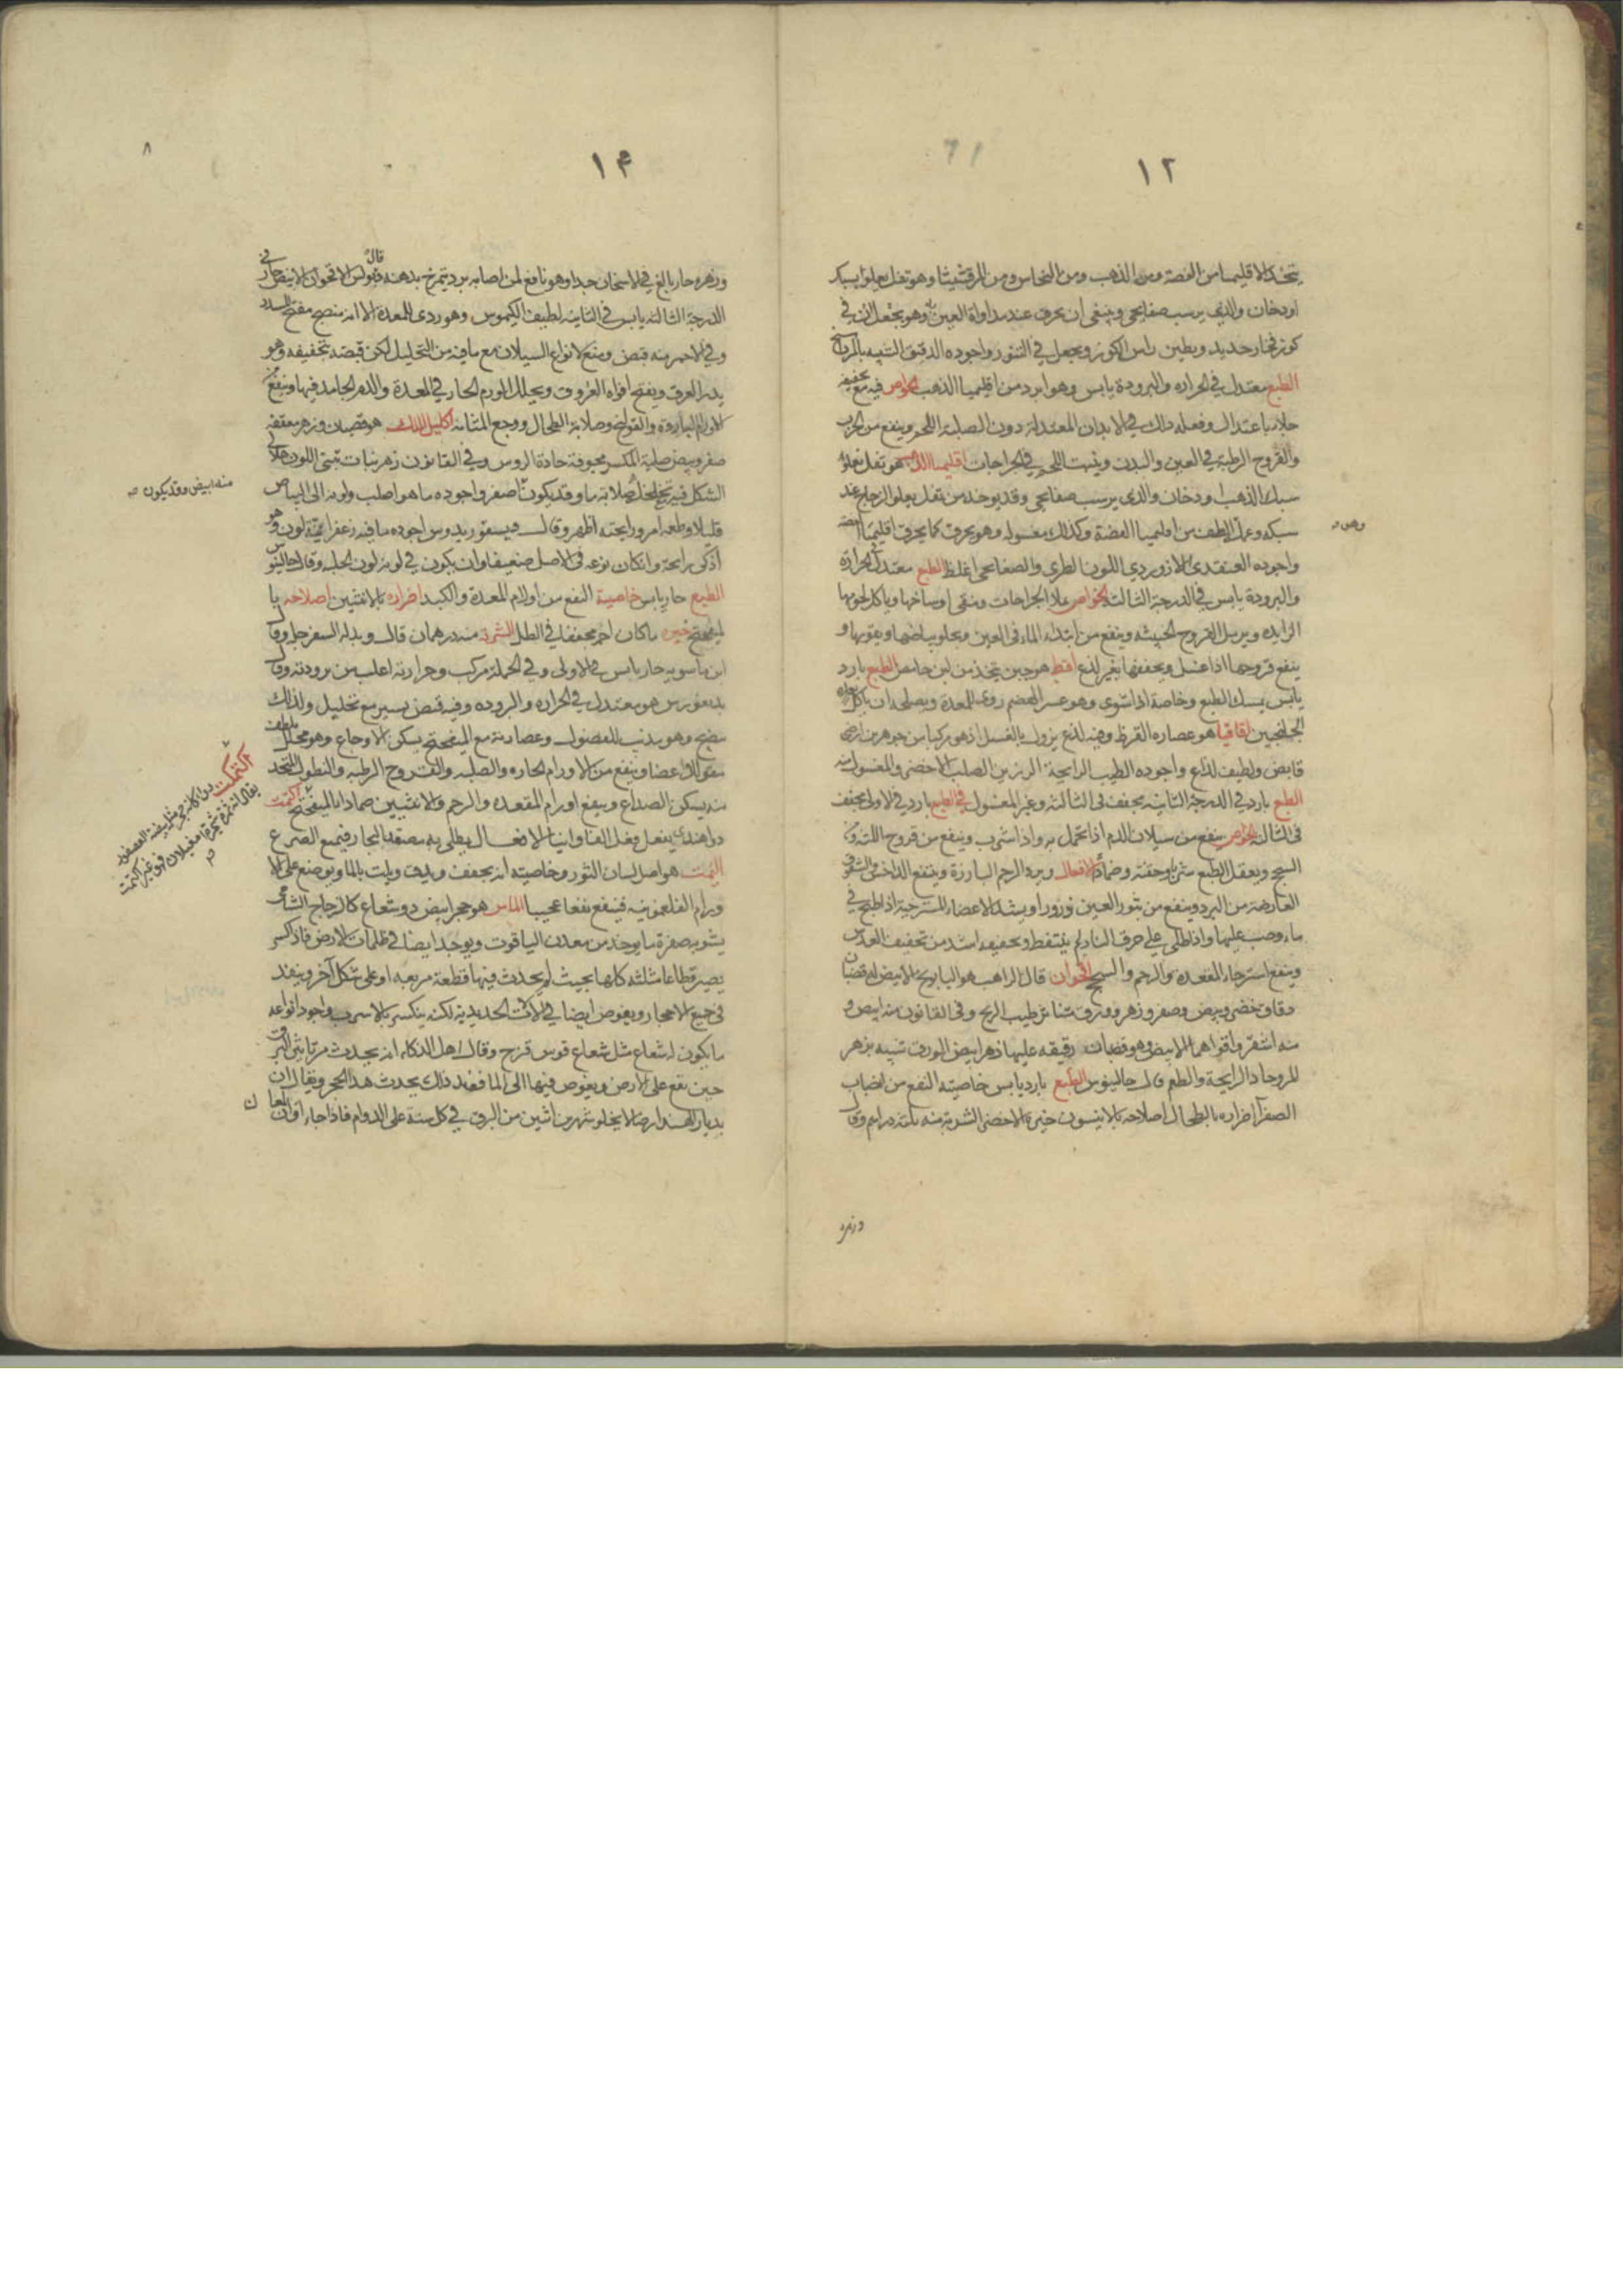 ١٢
يتخذ الاقليميا من الفضة ومن الذهب ومن النحاس ومن المرقشيثا وهو ثفل يعلوا بسبك
او دخان والذى يرسب صفايحى وينبغى ان يحرق عند مداواة العين به وهو يجعل فى
كوز فخار جديد ويطين راس الكوز ويجعل في التنور واجوده الدقيق الشبيه
الطبع معتدل في الحراره والبرودة يابس وهو ابرد من اقليميا الذهب الخواص فيه مع تجفيفه
جلاء باعتدال وفعله ذلك في الابدان المعتدلة دون الصلبة اللحم وينفع من الجرب
والقروح الرطبة في العين والبدن وينبت اللحم في الجراحات اقليميا الذهب هو ثفل يعلو
سبك الذهب او دخان والذى يرسب صفايحى وقد يوخذ من ثفل يعلو الزجاج عند
سبكه وعمله الطف من اقليميا الفضة وكذلك مغسوله وهو يحرق كما يحرق اقليميا الفضه
واجوده العنقودى اللازوردي اللون الطري والصفايحى اغلظ الطبع معتدل في الحرارة
والبرودة يابس في الدرجة الثالثة الخواص يملا الجراحات وينقى اوساخها وياكل لحومها
الزايده ويزيل القروح الخبيثه وينفع من ابتداء الماء في العين ويجلو بياضها ويقويها و
ينفع قروحها اذا غسل ويجففها بغير لذع اقط هو جبن يتخذ من لبن حامض الطبع بارد
يابس يمسك الطبع وخاصة اذا شوى وهو عسر الهضم ردى للمعدة ويصلحه ان ياكل بعده
الجلنجبين اقاقيا هو عصاره القرظ وفيه لذع يزول بالغسل اذ هو مركب من جوهرين ارضى
قابض ولطيف لذاع واجوده الطيب الرايحة الرزين الصلب الاخضر والمغسول منه
الطبع بارد في الدرجة الثانية مجفف فى الثالثة وغير المغسول في الطبع بارد في الاولى مجفف
فى الثالثه الخواص ينفع من سيلان الدم اذا تحمل به واذا شرب وينفع من قروح اللثة و
السحج ويعقل الطبع شربا وحقنة وضمادا الافعال ويرد الرحم البارزة وينفع الداحس والشقوق
العارضة من البرد وينفع من بثور العين ذرورا ويشد الاعضاء المسترخية اذا طبخ في
ماء وصب عليها واذا طلى على حرق النار لم يتنفط وتجفيفه اشد من تجفيف العدس
وينفع استرخاء المقعده والرحم والسحج اقحوان قال الراهب هو البابونج الابيض له قضبان
دقاق خضر وبيض وصفر وزهر وورق طيب الريح وفى القانون منه ابيض و
منه اشقر واقواهما الابيض وهو قضبان رقيقه عليها زهر ابيض الورق شبيه بزهر
المرو حاد الرايحة والطعم قال جالينوس الطبع بارد يابس خاصيته النفع من انصباب
الصفرا اضراره بالطحال اصلاحه بالانيسون خيره الاخضر الشربة منه ثلثه دراهم وقال
وزهره
١٣
٨
وزهره حار بالغ في الاسخان جدا وهو نافع لمن اصابه برد تمرخ بدهنه قال بولس الاقحوان الابيض حار في
الدرجة الثالثه يابس في الثانية لطيف الكيموس وهو ردى للمعدة الا انه منضج مفتح السدد
وفي الاحمر منه قبض ومنع لانواع السيلان مع ما فيه من التحليل لكن قبضه تجفيفه وهو
يدر العرق ويفتح افواه العروق ويحلل الورم الحار في المعدة والدم الجامد فيها وينفع من
الاورام الباردة والقوابى وصلابة الطحال ووجع المثانة اكليل الملك هو قضبان وزهر معقفه
صفر وبيض صلبة المكسر مجوفة حادة الروس وفي القانون زهر نبات تبنى اللون هلالى
الشكل فيه مع تخلخله صلابة ما وقد يكون اصفر واجوده ما هو اصلب ولونه الى البياض
منه ابيض وقد يكون صح
قليلا وطعمه امر ورايحته اظهر وقال ديسقوريدوس اجوده ما فيه زعفرانية لون وهو
اذكى رايحة وان كان نوعه فى الاصل ضعيفا وان يكون في لونه لون الحلبه وقال جالينوس
الطبع حار يابس خاصيته النفع من اورام المعدة والكبد اضراره بالانثيين اصلاحه با
لميفختج خيره ما كان احمر مجففا في الظل الشربة منه درهمان قال وبدله السفرجل وقال
ابن ماسويه حار يابس في الاولى وفي الجملة مركب وحرارته اغلب من برودته وقال
بديغورس هو معتدل في الحراره والبروده وفيه قبض يسير مع تحليل ولذلك
ينضج وهو يذيب الفضول وعصارته مع الميفختج يسكن الاوجاع وهو محلل ملطف
مقو للاعضا وينفع من الاورام الحاره والصلبه والقروح الرطبه والنطول المتخذ
منه يسكن الصداع وينفع اورام المقعده والرحم والانثيين ضمادا بالميفختج اكتمت
دوا هندى يفعل فعل الفاوانيا الافعال يطلى به مصعد البخار فيمنع الصرع
اليمت هو اصل لسان الثور وخاصيته انه يجفف ويدق ويلت بالما ويوضع على الا
ورام الفلغمونيه فينفع نفعا عجيبا الماس هو حجر ابيض ذو شعاع كالزجاج الشامى
يشوبه صفرة ما يوخذ من معدن الياقوت ويوجد ايضا في ظلمات الارض فاذا كسر
يصير قطاعا مثلثة كلها بحيث لم يحدث فيها قطعة مربعه او على شكل آخر وينفذ
فى جميع الاحجار ويغوص ايضا في الآلات الحديدية لكنه ينكسر بالاسرب واجود انواعه
ما يكون له شعاع مثل شعاع قوس قزح وقال اهل الذكاء انه يحدث من البرق
حين يقع على الارض ويغوص فيها الى الما فعند ذلك يحدث هذا الحجر ويقال ان
بديار الهند ارضا لا يخلو شهرين اثنين من البرق في كل سنة على الدوام فاذا جاء اوان